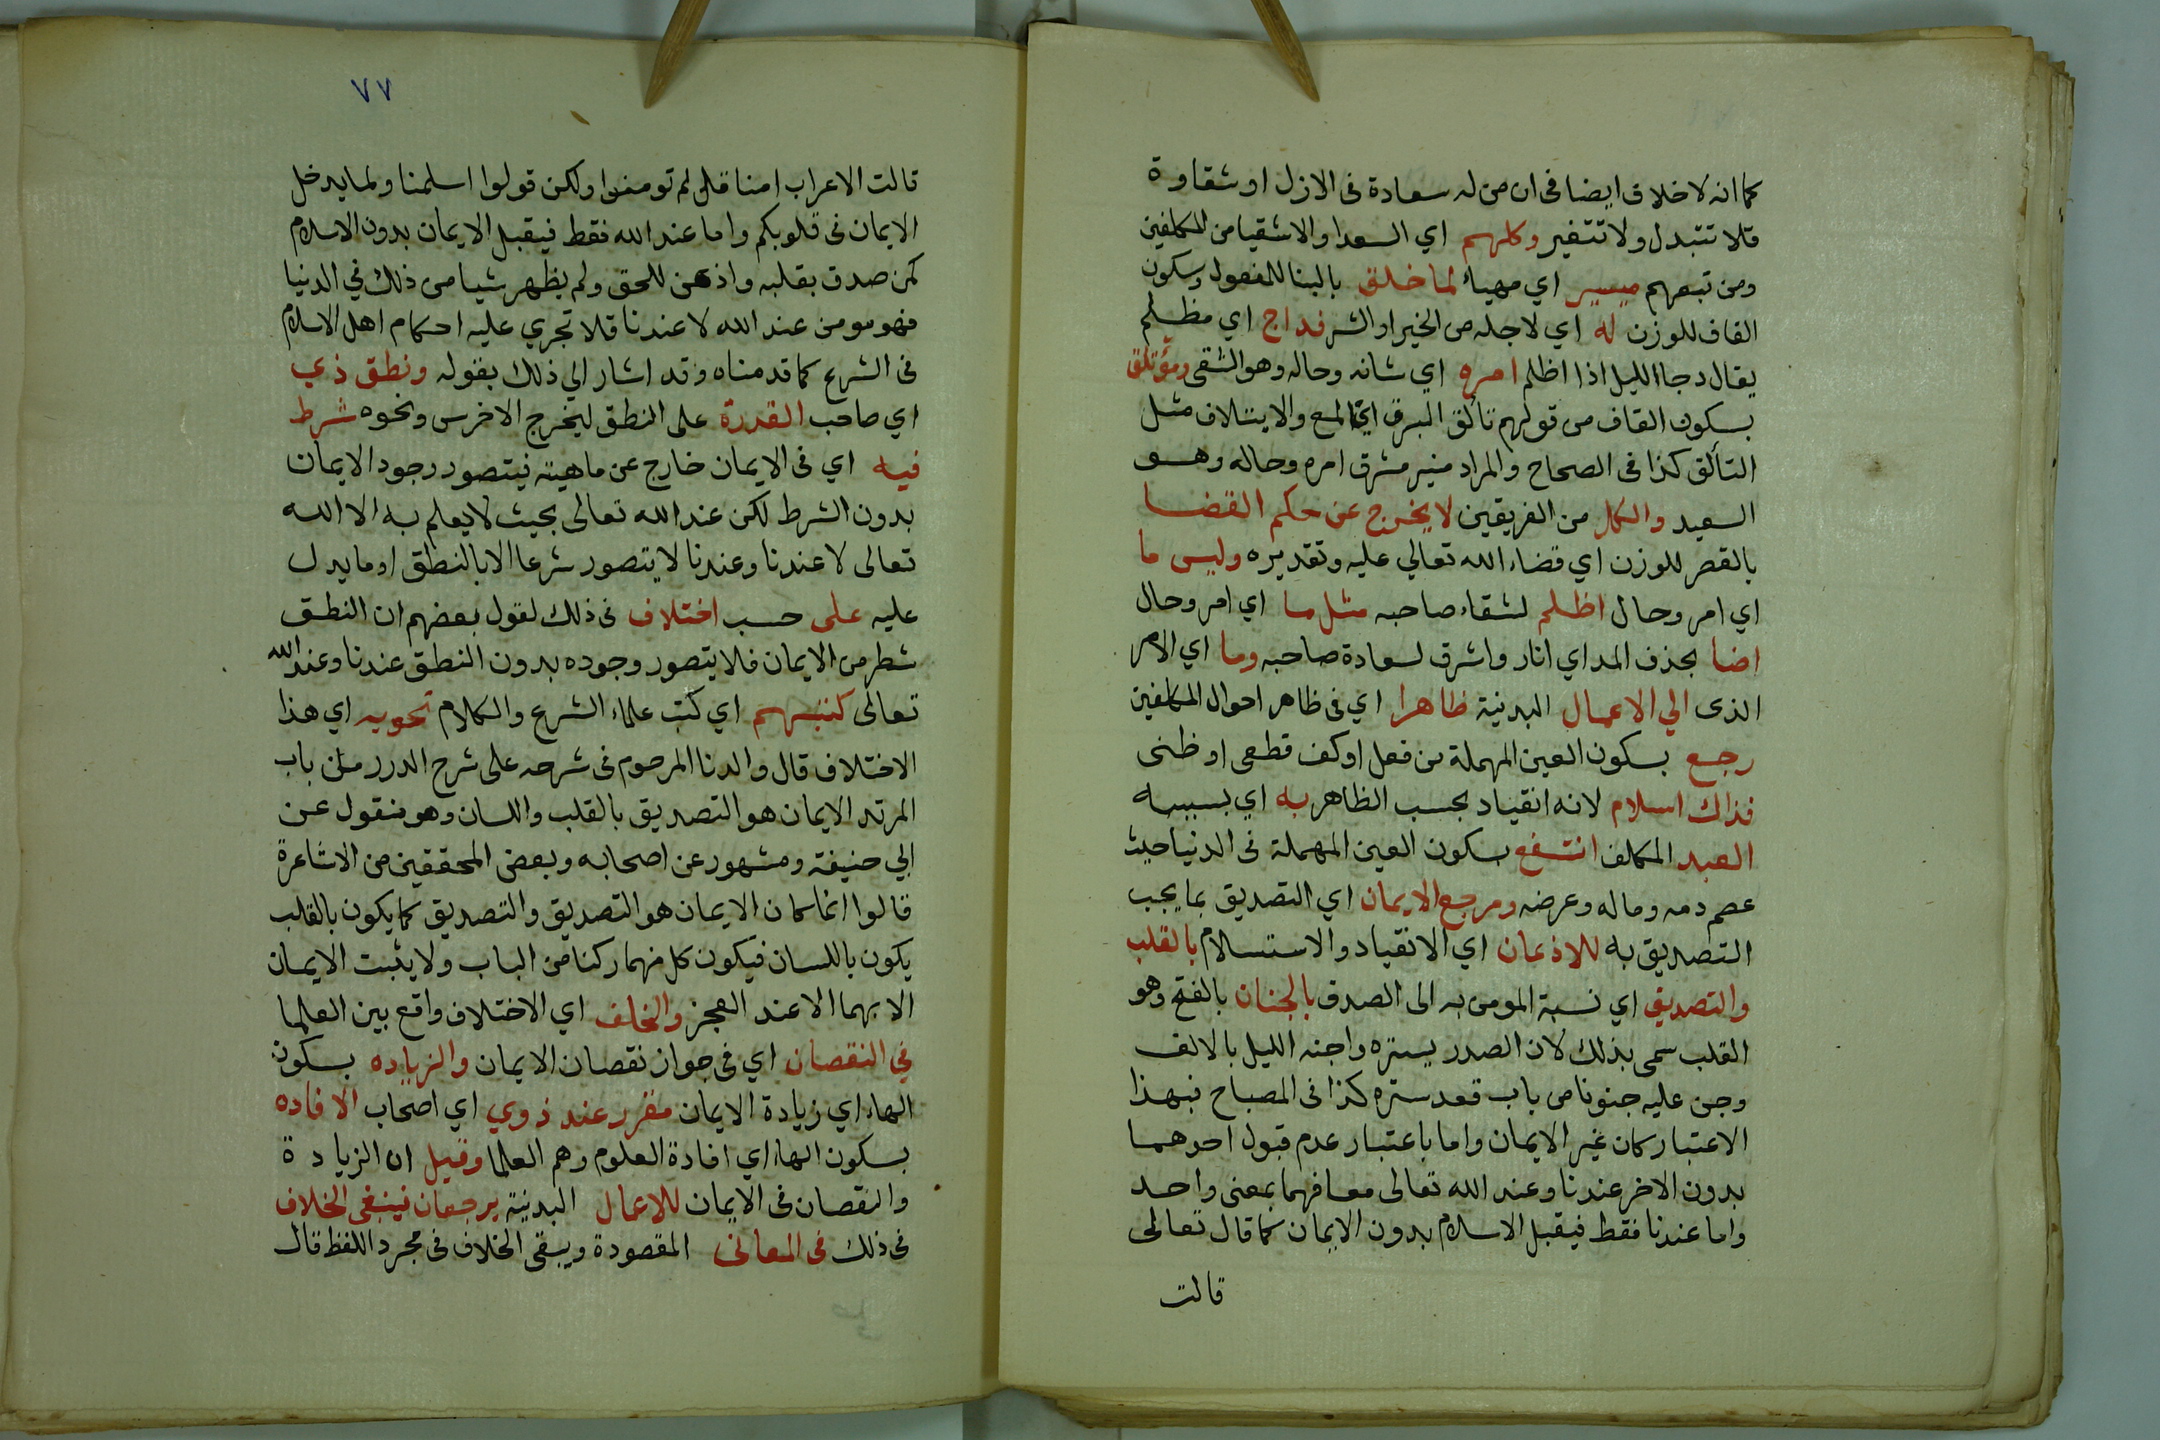 كما انه لا خلاف ايضا في ان من له سعادة فى الازل او شقاوة
فلا تتبدل ولا تتغير وكلهم اي السعدا والاشقيا من المكلفين
ومن تبعهم ميسر اي مهياء لما خلق بالبنا للمفعول وسكون
القاف للوزن له اي لاجله من الخير او الشر فداج اي مظلم
يقال دجا الليل اذا اظلم امره اي شانه وحاله وهو الشقى ومؤتلق
بسكون القاف من قولهم تألق البرق اي لمع والايتلاف مثل
التألق كذا فى الصحاح والمراد منير مشرق امره وحاله وهو
السعيد والكل من الفريقين لا يخرج عن حكم القضا
بالقصر للوزن اي قضاء الله تعالي عليه وتقديره وليس ما
اي امر وحال اظلم لشقاء صاحبه مثل ما اي امر وحال
اضا بحذف المد اي انار واشرق لسعادة صاحبه وما اي الامر
الذى الي الاعمال البدنية ظاهرا اي فى ظاهر احوال المكلفين
رجع بسكون العين المهملة من فعل او كف قطعى او ظنى
فذاك اسلام لانه انقياد بحسب الظاهر به اي بسببه
العبد المكلف انتفع بسكون العين المهملة فى الدنيا حيث
عصم دمه وماله وعرضه ومرجع الايمان اي التصديق بما يجب
التصديق به للاذعان اي الانقياد والاستسلام بالقلب
والتصديق اي نسبة المومن به الى الصدق بالجنان بالفتح وهو
القلب سمى بذلك لان الصدر يستره واجنه الليل بالالف
وجن عليه جنونا من باب قعد ستره كذا فى المصباح فبهذا
الاعتبار كان غير الايمان واما باعتبار عدم قبول احدهما
بدون الاخر عندنا وعند الله تعالى معا فهما بمعنى واحد
واما عندنا فقط فيقبل الاسلام بدون الايمان كما قال تعالى
قالت
٧٧
قالت الاعراب امنا قل لم تومنوا ولكن قولوا اسلمنا ولما يدخل
الايمان فى قلوبكم واما عند الله فقط فيقبل الايمان بدون الاسلام
كمن صدق بقلبه واذعن للحق ولم يظهر شيا من ذلك في الدنيا
فهو مومن عند الله لا عندنا فلا تجري عليه احكام اهل الاسلام
فى الشرع كما قدمناه وقد اشار الي ذلك بقوله ونطق ذي
اي صاحب القدرة على النطق ليخرج الاخرس ونحوه شرط
فيه اي فى الايمان خارج عن ماهيته فيتصور وجود الايمان
بدون الشرط لكن عند الله تعالى بحيث لا يعلم به الا الله
تعالى لا عندنا وعندنا لا يتصور شرعا الا بالنطق او ما يدل
عليه على حسب اختلاف فى ذلك لقول بعضهم ان النطق
شطر من الايمان فلا يتصور وجوده بدون النطق عندنا وعند الله
تعالى كتبهم اي كتب علماء الشرع والكلام تحويه اي هذا
الاختلاف قال والدنا المرحوم فى شرحه على شرح الدرر من باب
المرتد الايمان هو التصديق بالقلب واللسان وهو منقول عن
ابي حنيفة ومشهور عن اصحابه وبعض المحققين من الاشاعرة
قالوا انما كان الايمان هو التصديق والتصديق كما يكون بالقلب
يكون باللسان فيكون كل منهما ركنا من الباب ولا يثبت الايمان
الا بهما الا عند العجز والخلف اي الاختلاف واقع بين العلما
في النقصان اي فى جواز نقصان الايمان والزياده بسكون
الهاء اي زيادة الايمان مقرر عند ذوي اي اصحاب الافاده
بسكون الهاء اي افادة العلوم وهم العلما وقيل ان الزيادة
والنقصان فى الايمان للاعمال البدنية يرجعان فينبغى الخلاف
فى ذلك فى المعانى المقصودة ويبقى الخلاف فى مجرد اللفظ قال